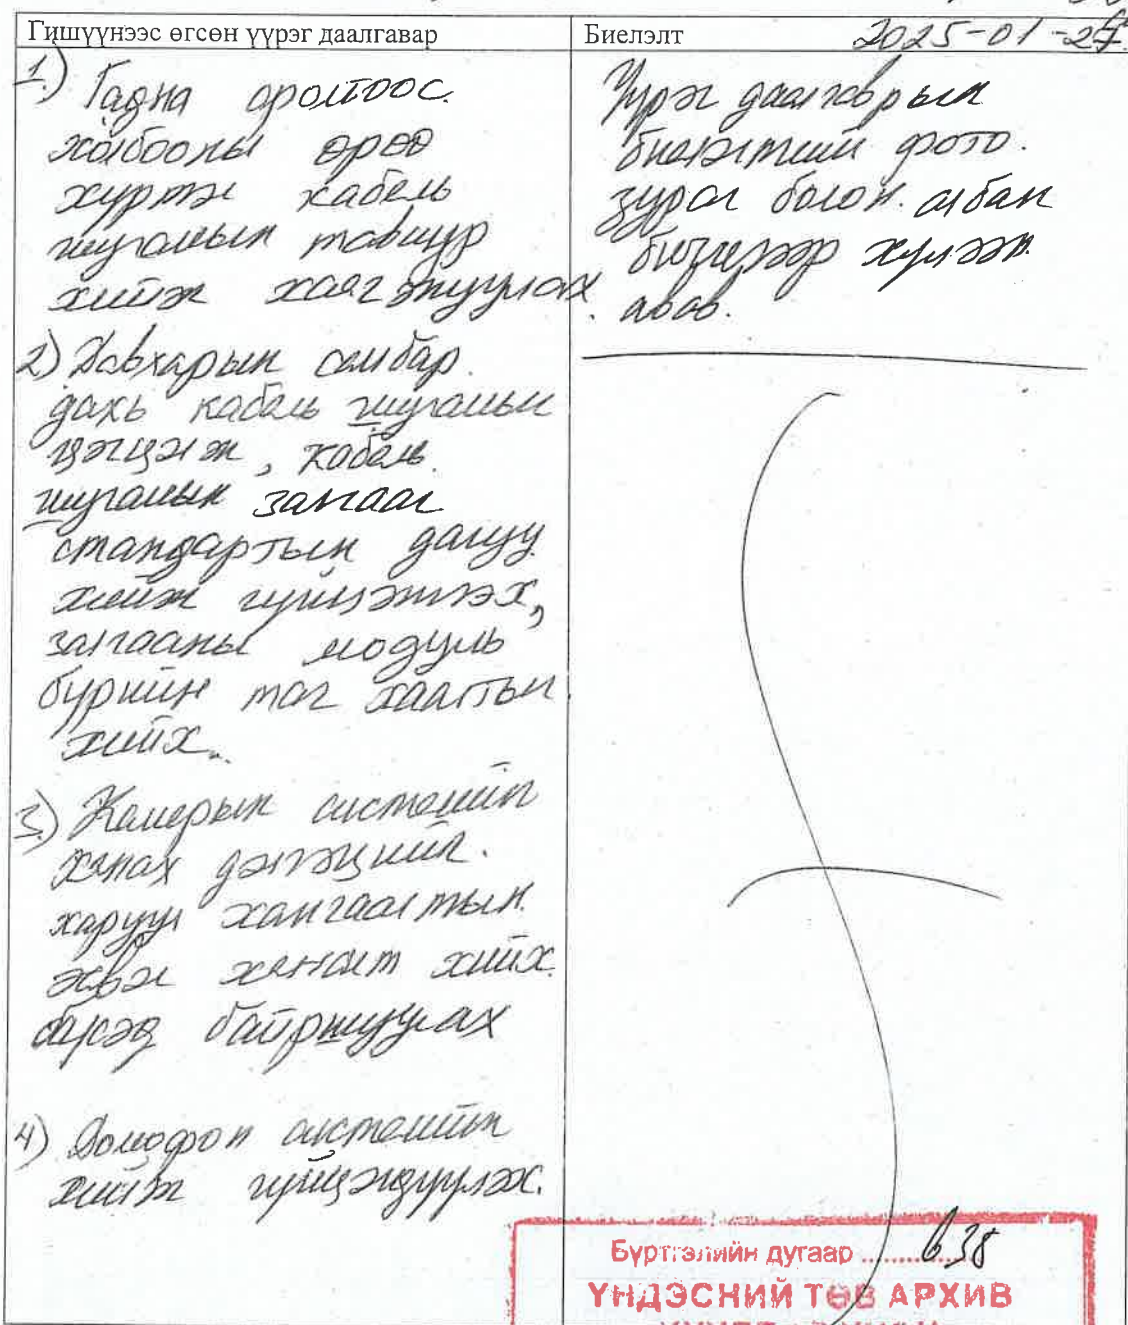 Гишүүнээс өгсөн үүрэг даалгавар
Биелэлт 2025-01-27.
1.) Гадна оролтоос
холбооны өрөө
хүртэл кабель
шугамын тавиур
хийж хаягжуулах.
2) Давхарын самбар
дахь кабель шугамын
цэгцэлж, кабель
шугамын залгааг
стандартын дагуу
хийж гүйцэтгэх,
залгааны модуль
бүрийн таг хаалтыг
хийх.
3.) Камерын системийн
хянах дэлгэцийг
харуул хамгаалтын
хяналт хийх
бүсэд байршуулах
4) Домофон системийн
хийж гүйцэлдүүлэх.
Үүрэг даалгаврын
биелэлтийг фото
зураг болон албан
бичгээр хүлээн
авав.
Бүртгэлийн дугаар ........638
ҮНДЭСНИЙ ТӨВ АРХИВ